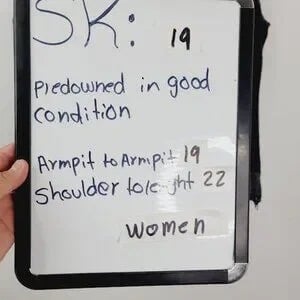 SK: 19
Predowned in good
condition
Armpit to Armpit 19
Shoulder to lenght 22
Women